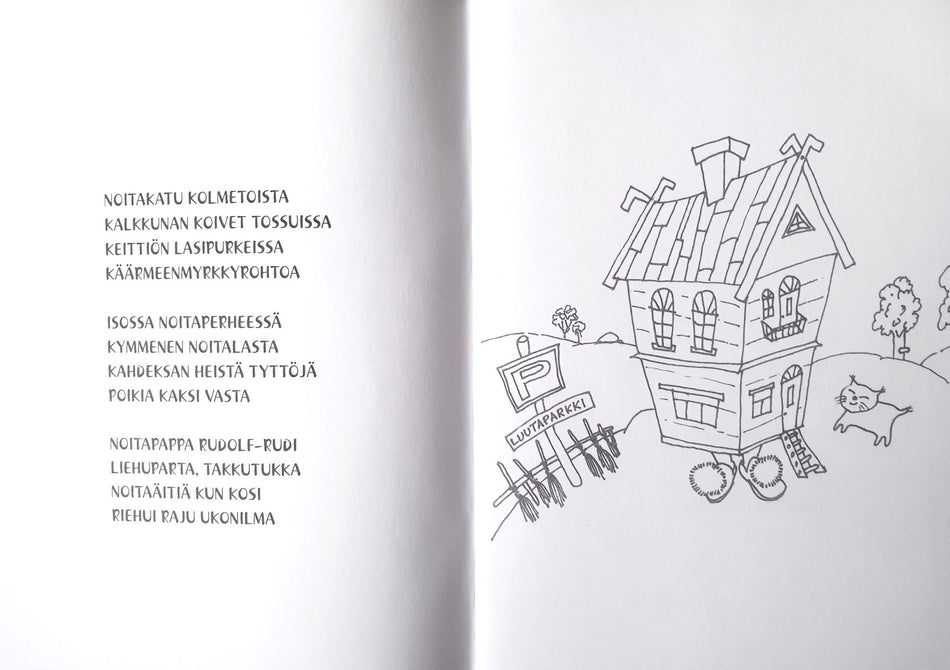 NOITAKATU KOLMETOISTA
KALKKUNAN KOIVET TOSSUISSA
KEITTIÖN LASIPURKEISSA
KÄÄRMEENMYRKKYROHTOA

ISOSSA NOITAPERHEESSÄ
KYMMENEN NOITALASTA
KAHDEKSAN HEISTÄ TYTTÖJÄ
POIKIA KAKSI VASTA

NOITAPAPPA RUDOLF-RUDI
LIEHUPARTA, TAKKUTUKKA
NOITAÄITIÄ KUN KOSI
RIEHUI RAJU UKONILMA

P
LUUTAPARKKI